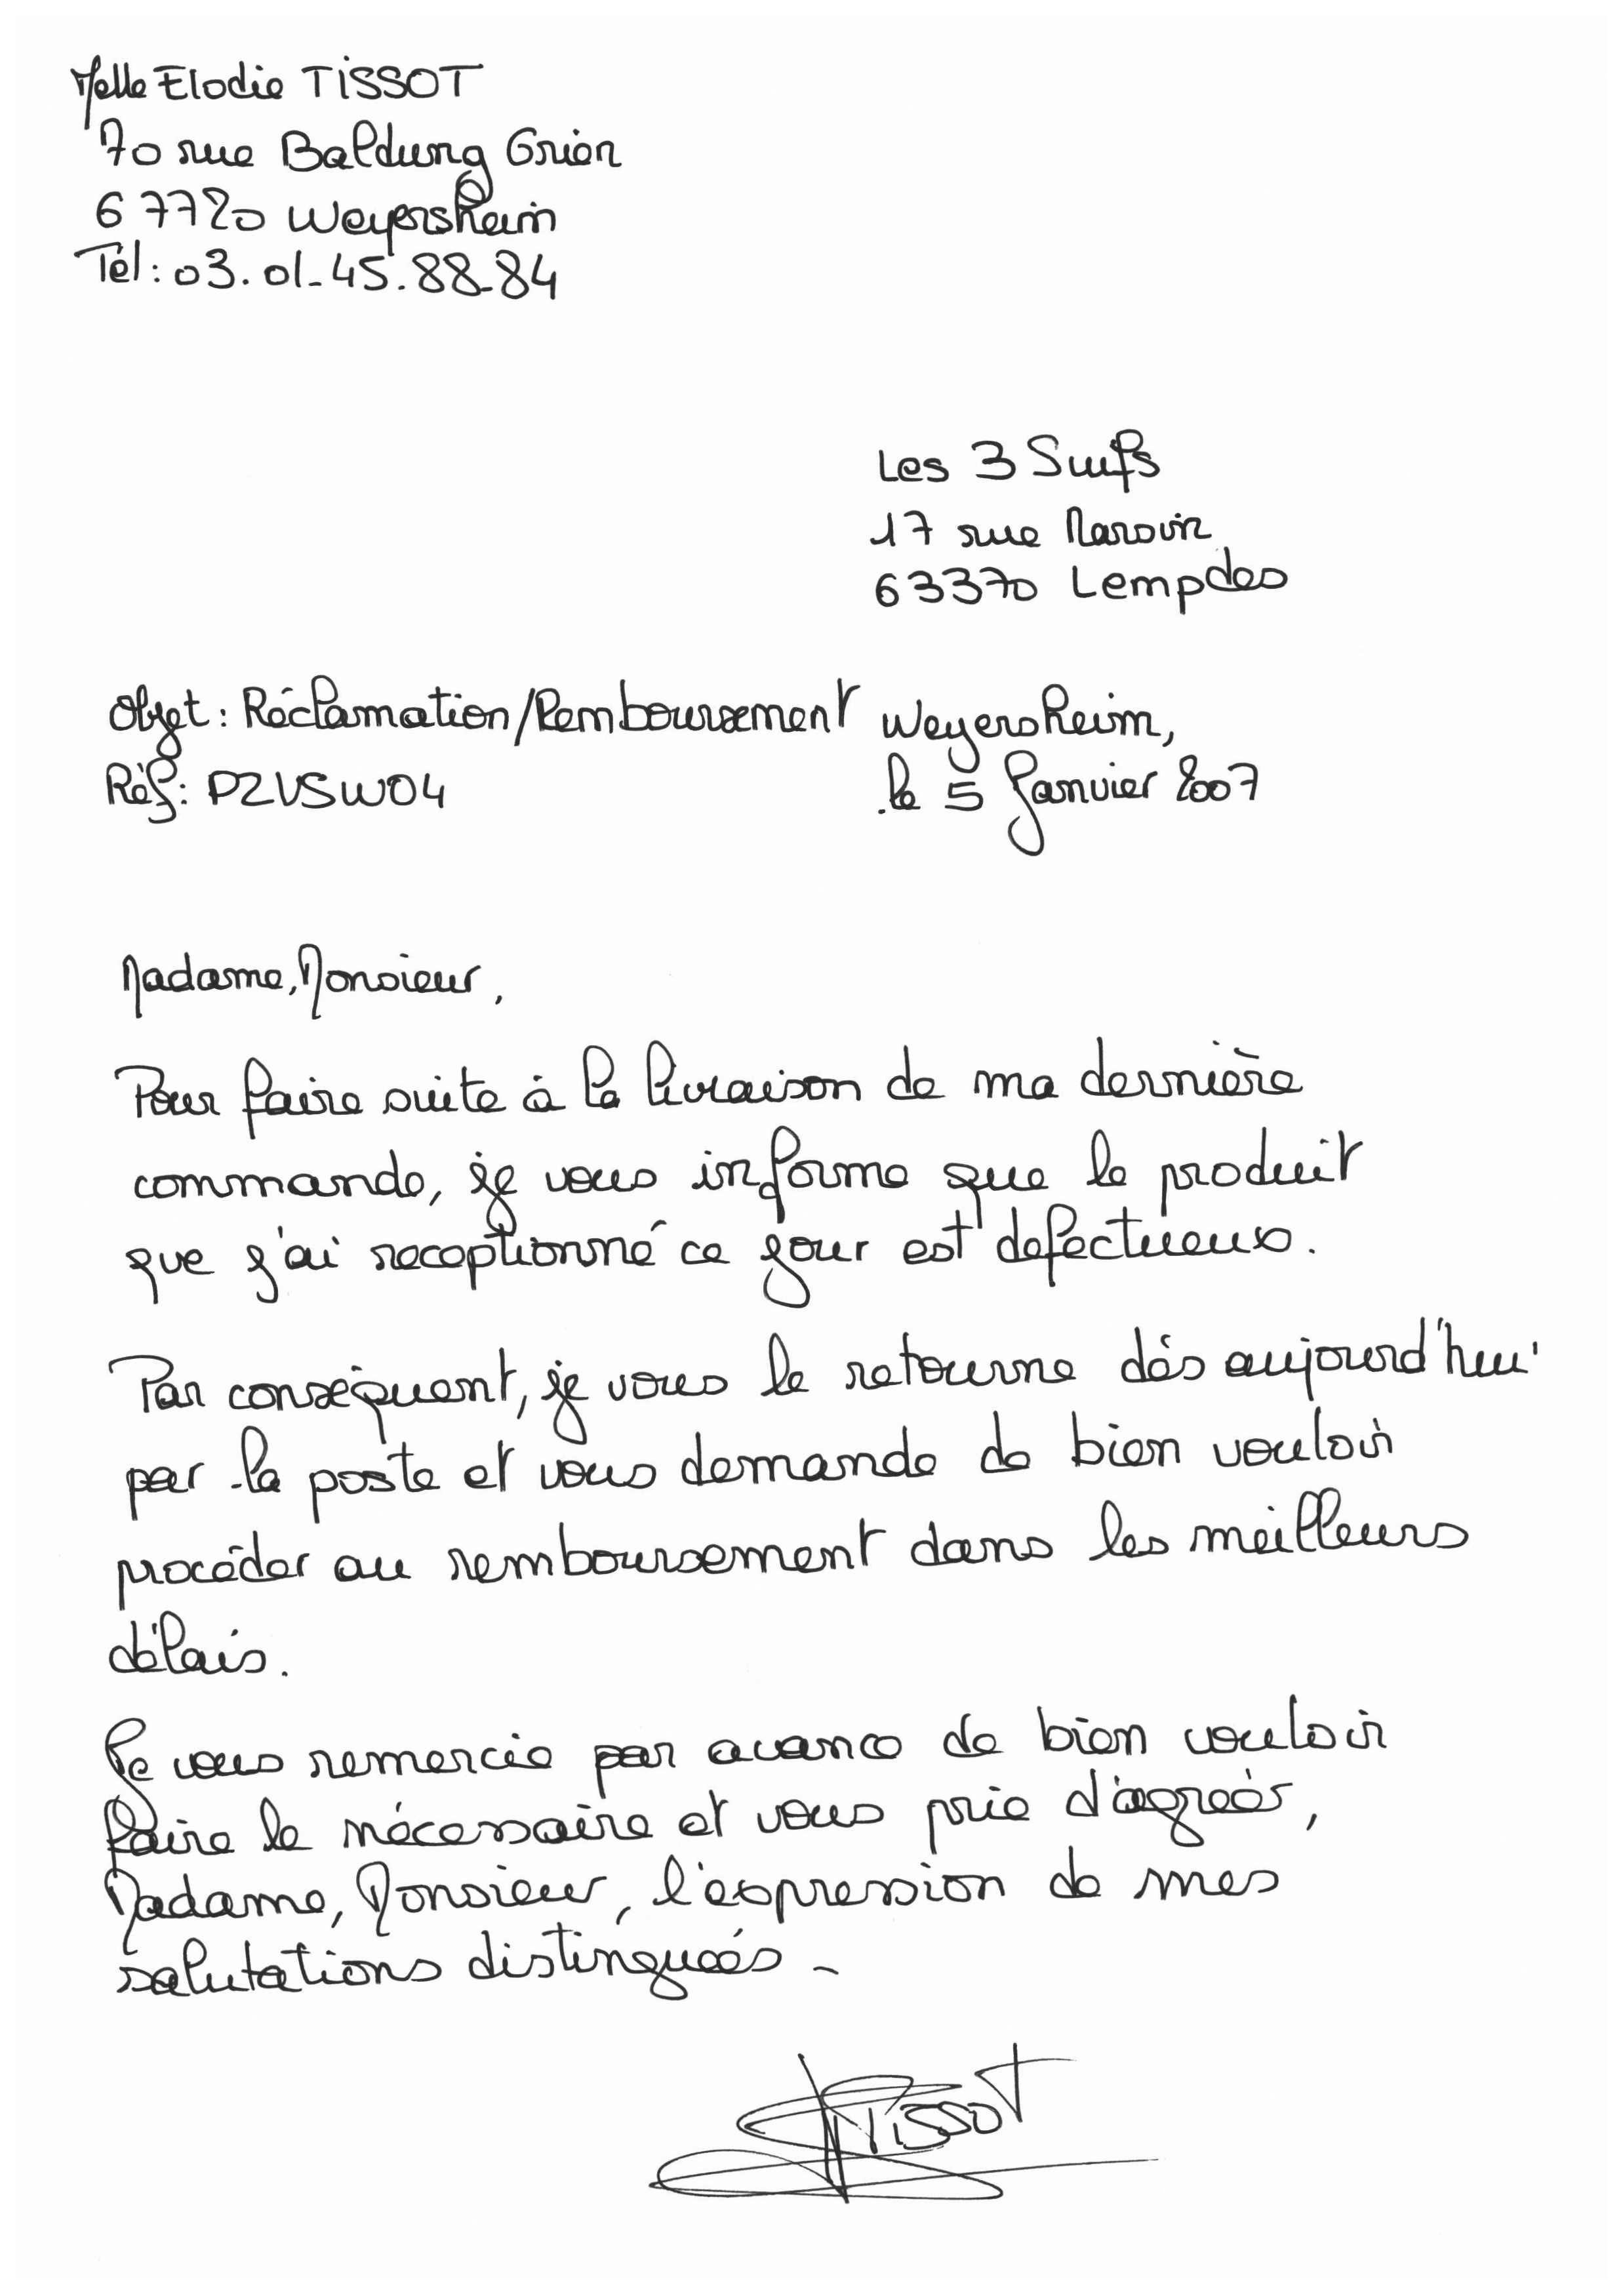 Melle Elodie TISSOT
70 rue Baldung Grien
67720 Weyersheim
Tél : 03.01.45.88.84
Les 3 Suifs
17 rue Marovin
63370 Lempdes
Objet : Réclamation/Remboursement
Weyersheim,
Réf : PZVSW04
le 5 Janvier 2007
Madame, Monsieur,
Pour faire suite à la livraison de ma dernière
commande, je vous informe que le produit
que j'ai receptionné ce jour est defectueux.
Par conséquent, je vous le retourne dès aujourd'hui
par la poste et vous demande de bien vouloir
procéder au remboursement dans les meilleurs
délais.
Je vous remercie par avance de bien vouloir
faire le nécessaire et vous prie d'agréer,
Madame, Monsieur, l'expression de mes
salutations distinguées.
Tissot